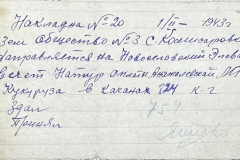 Накладна № 20 1/II - 1943 г
Зем Общество № 3 С. Комисаровка
Направляется на Новоселовский Элев
в счет Натур оплати Анатолевской МТС
Кукуруза в качанах 724 к-г
Здал 754
Принял